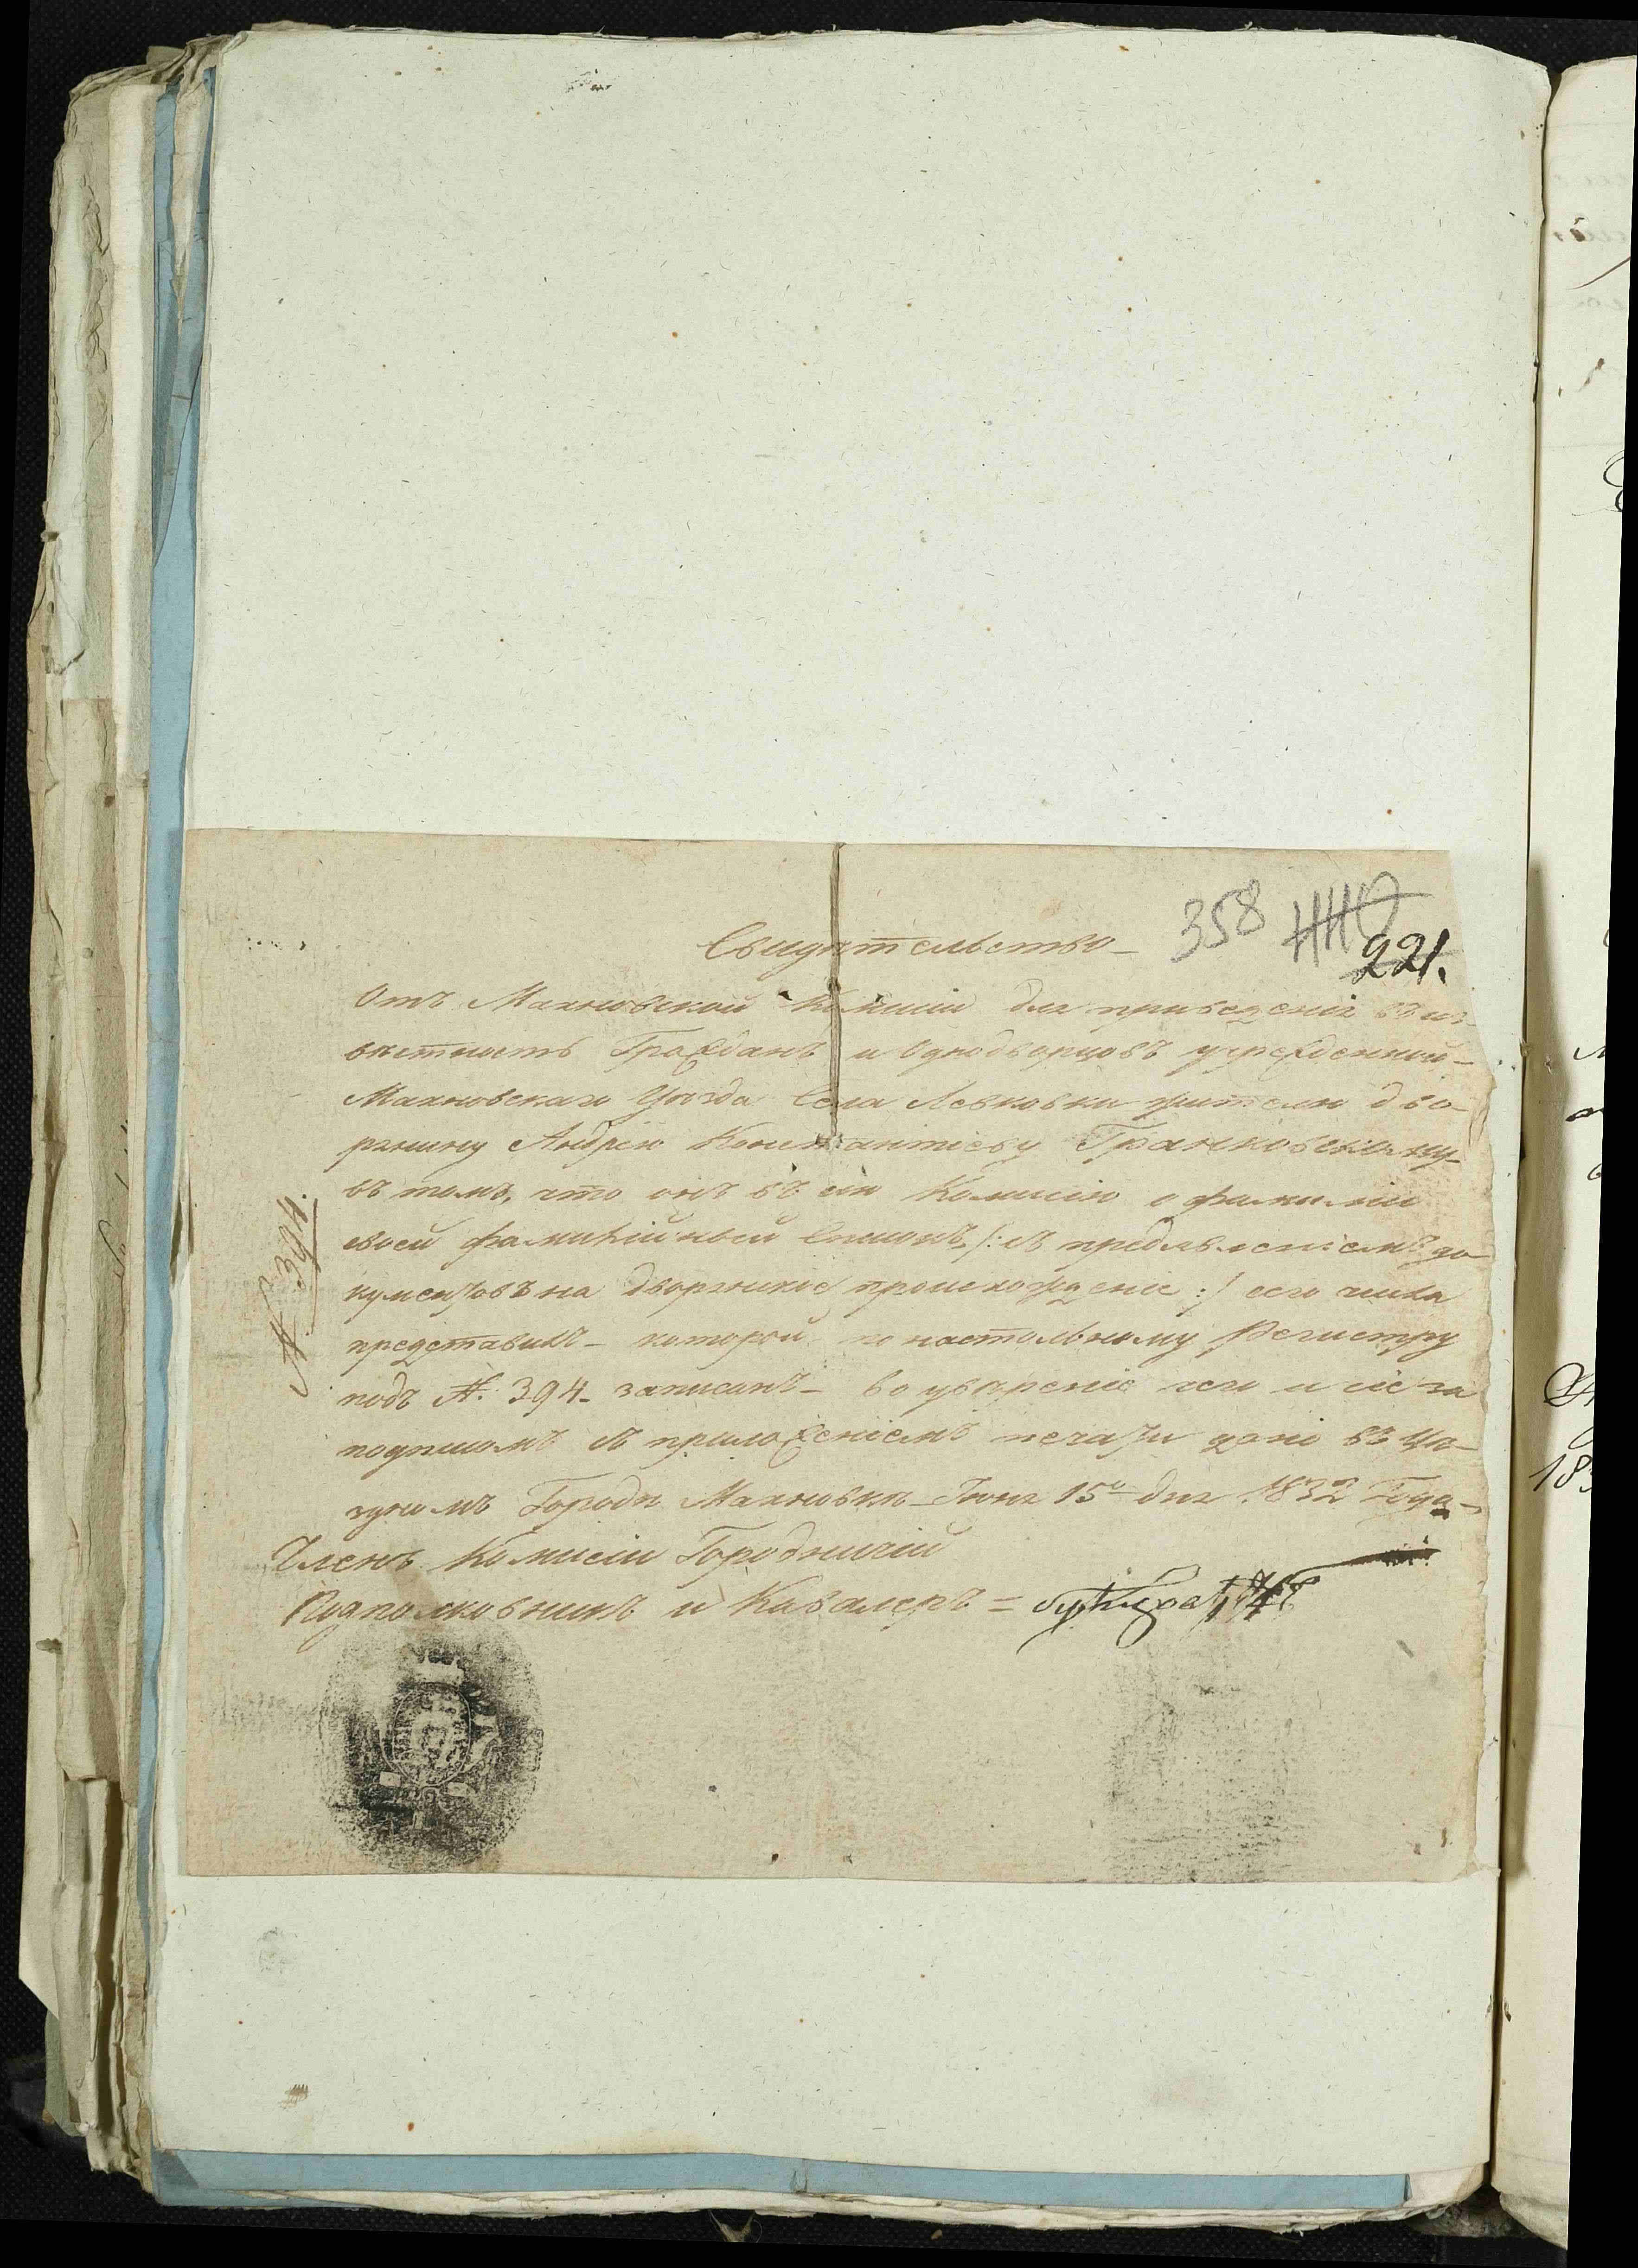 358 440
221.
Свидѣтельство
Отъ Махновской Комисіи для приведенія въ из-
вѣстность Гражданъ и Однодворцовъ учрежденной
Махновскаго Уѣзда Села Левковки жителю дво-
рянину Андрею Грановскому
въ томъ, что онъ въ сію Комисію о фамиліи
своей фамилійный Списокъ /: съ предъявленіемъ до-
кументовъ на дворянское происхожденіе :/ сего числа
представилъ - которой по настольному Регистру
подъ №: 394. записанъ - во увѣреніе чего и сіе за
подписомъ съ приложеніемъ печати дано въ Уѣ-
здномъ Городѣ Махновкѣ Іюня 15го дня 1832 Года
Членъ Комисіи Городничій
Подполковникъ и Кавалеръ =
№ 394.